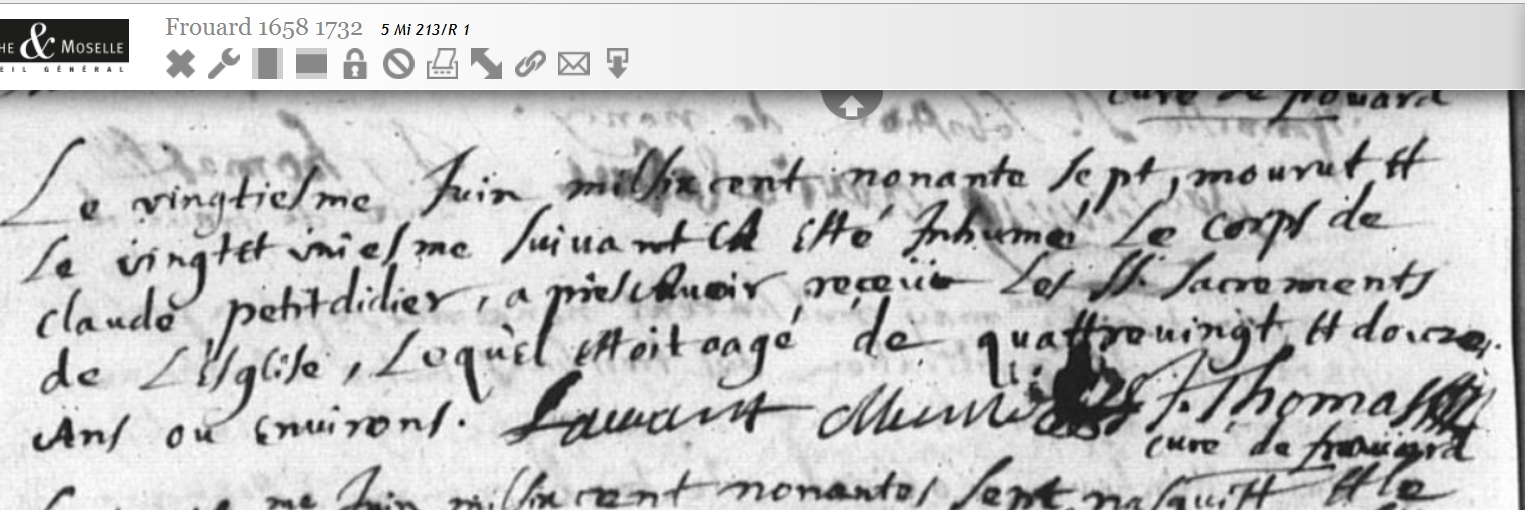 HE & MOSELLE
EIL GÉNÉRAL
Frouard 1658 1732 5 Mi 213/R 1
curé de frouard
Le vingtiesme Juin mil six cent nonante sept, mourut et
le vingt et uniesme suivant et a esté Inhumé Le corps de
claude petitdidier, apres avoir receüe Les SS. sacrements
de L'Esglise, Lequel estoit aagé de quattrevingt et douze
Ans ou Environs. Laurent J. Thomassin
curé de frouard
me Juin mil six cent nonante sept nasquitt et le